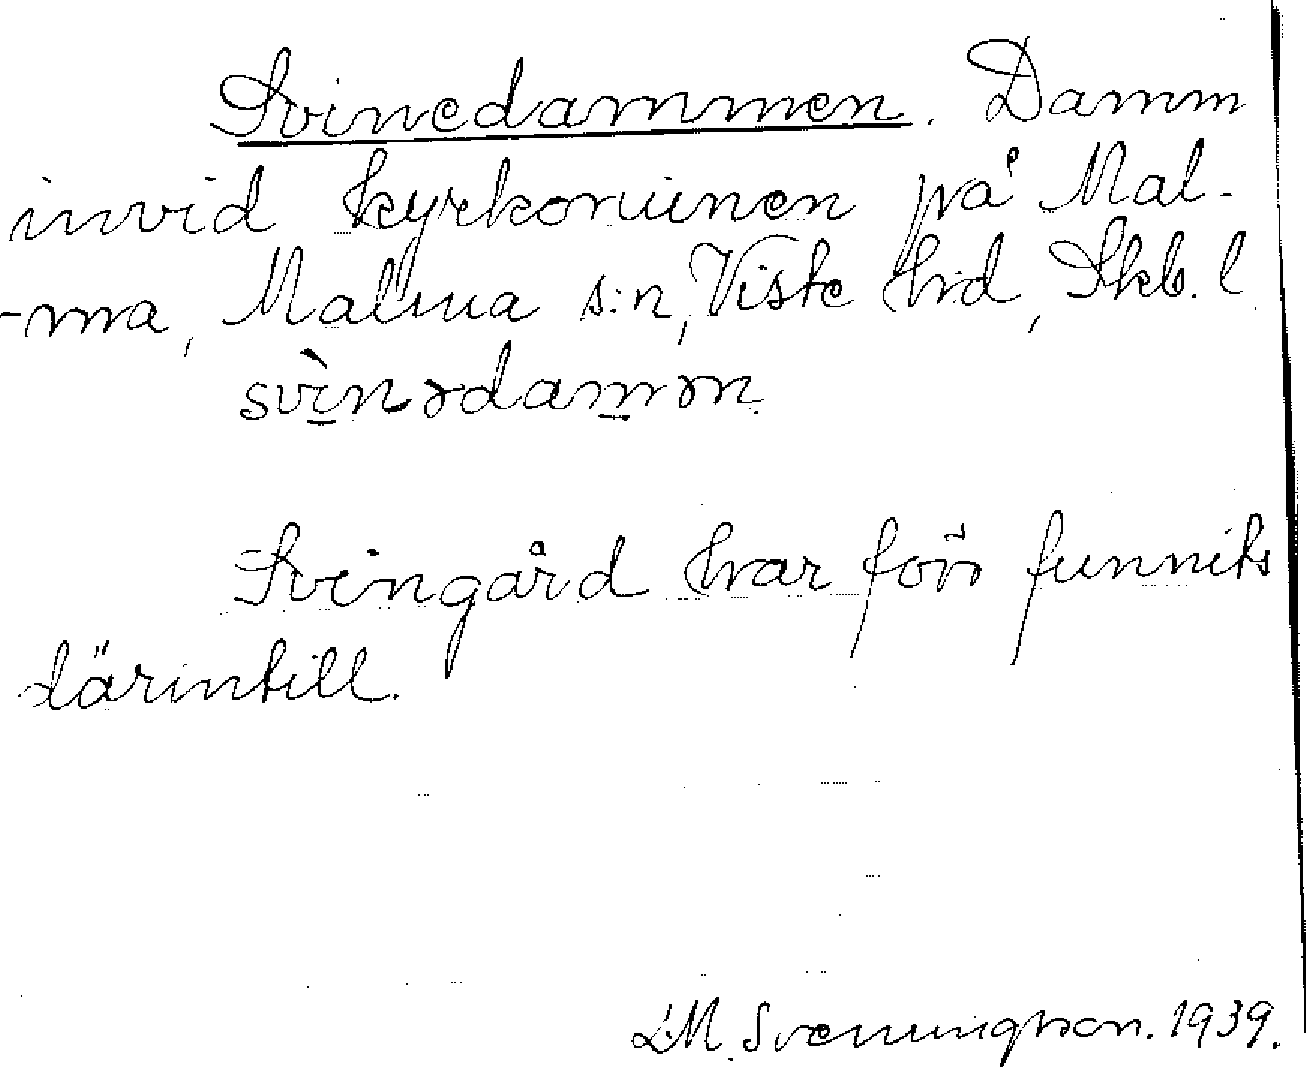 Svinedammen. Damm
invid kyrkoruinen på Mal-
-ma, Malma s:n, Viste hrd, Skb. l
svìnədamən.
Svingård har förr funnits
därintill.
L.M. Svenningson. 1939.